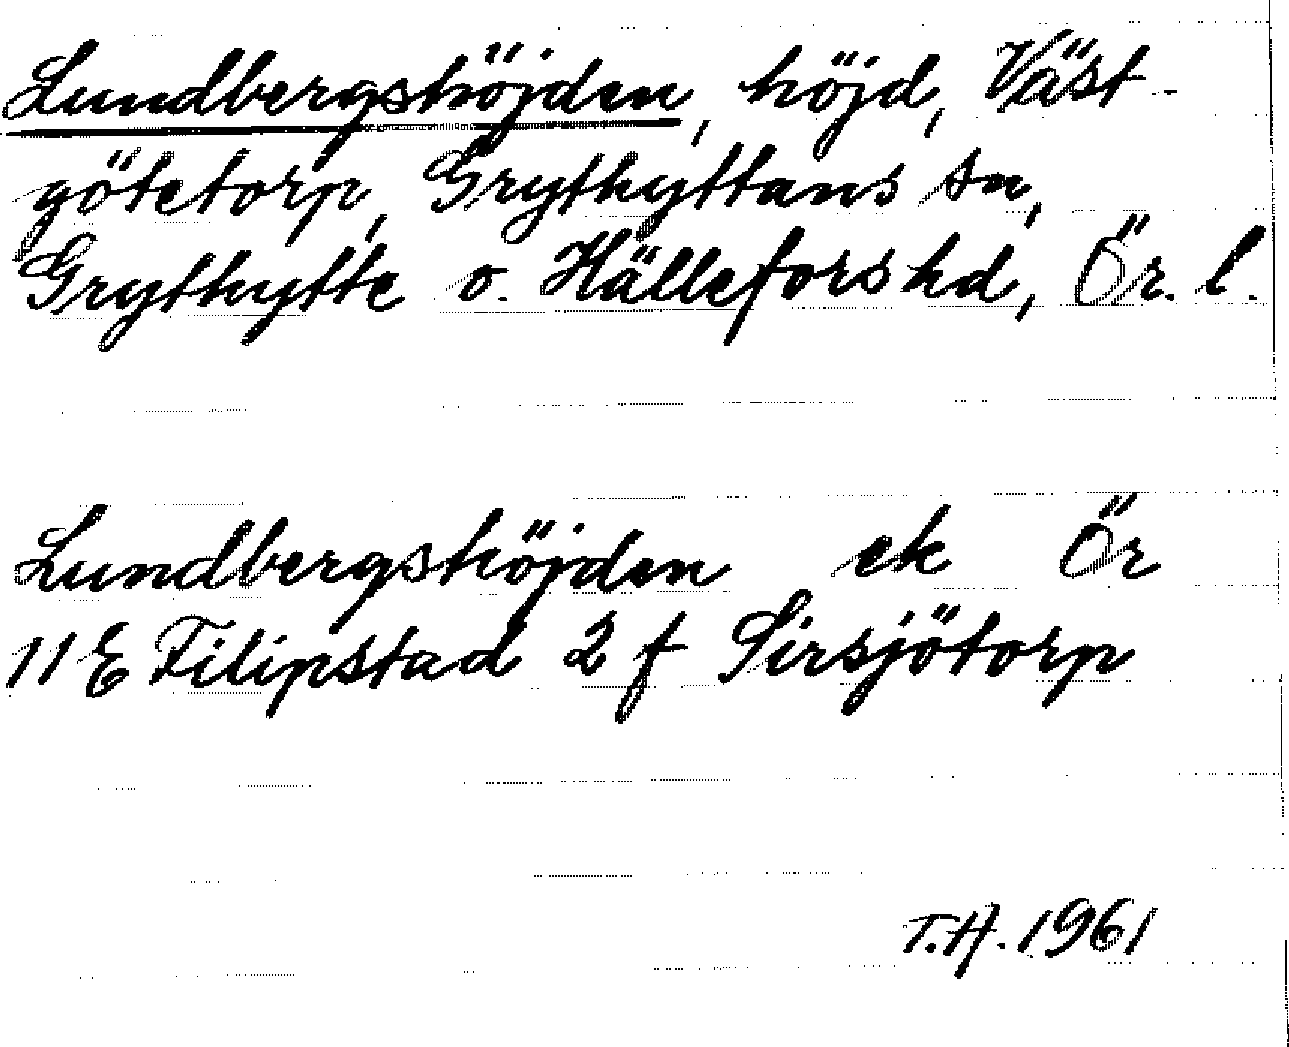 Lundbergshöjden, höjd, Väst-
götetorp, Grythyttans sn,
Grythytte o. Hällefors hd, Ör. l.
Lundbergshöjden ek Ör
11 E Filipstad 2 f Sirsjötorp
T.A. 1961